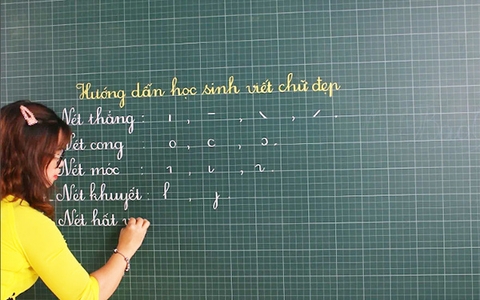 Hướng dẫn học sinh viết chữ đẹp
Nét thẳng : ı , − , \ , / .
Nét cong : o , c , ɔ .
Nét móc : ı , ɩ , ɿ .
Nét khuyết : l , j .
Nét hất v